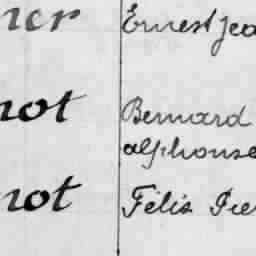 ner Ernest Jea
not Bernard
alphonse
not Félix Pie